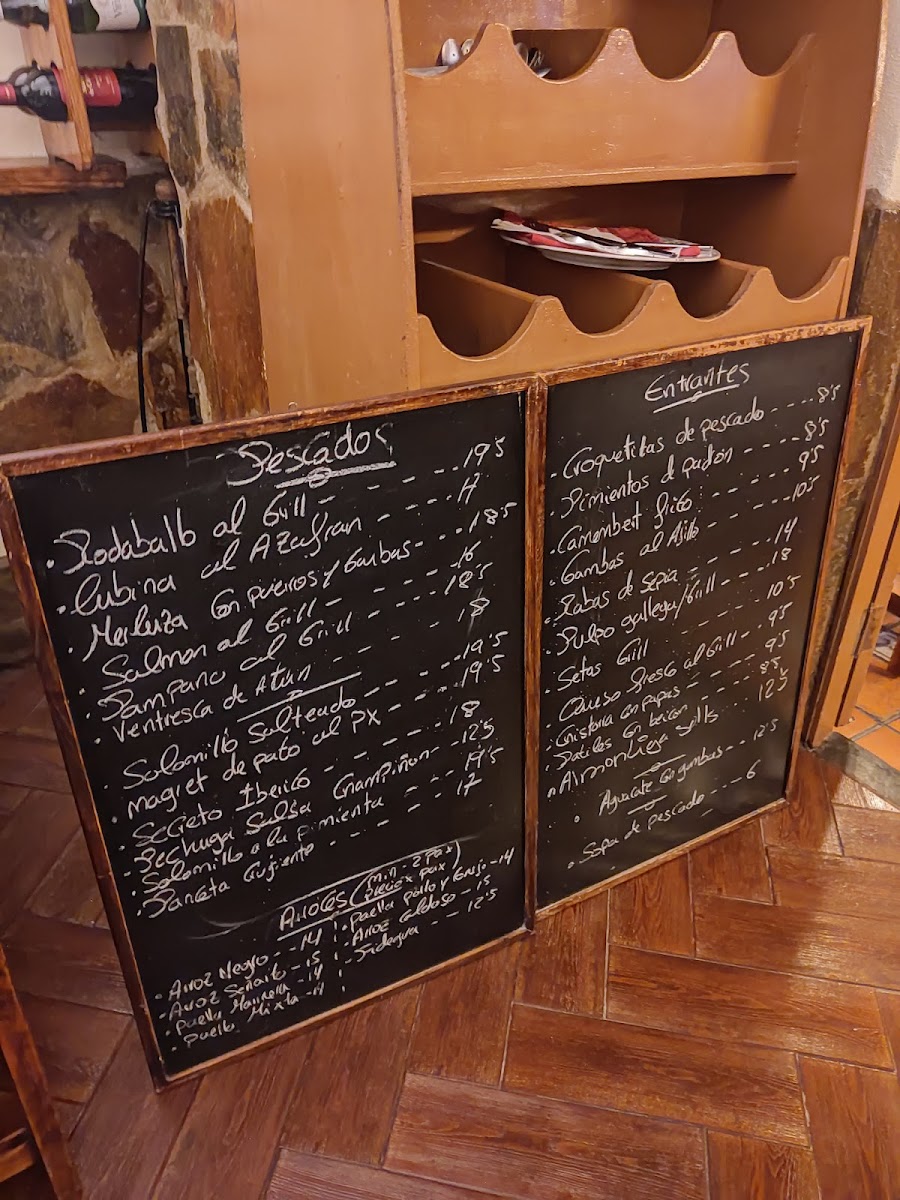 Pescados
· Rodaballo al Grill - - - - - 19'5
· Lubina al Azafran - - - - 17
· Merluza Con pueros y Gambas - - - 18'5
· Salmon al Grill - - - - - 16
· Pampano al Grill - - - - 18'5
· Ventresca de Atún - - - - 18
· Solomillo Salteado - - - - 19'5
· magret de pato al PX - - - - 19'5
· Secreto Iberico - - - - - 18
· Pechuga Salsa Champiñon - - 12'5
· Solomillo a la pimienta - - -
· Panceta Crujiente - - - - - 17
Arroces (min. 2 pax
precio x pax)
· Arroz Negro - - 14
· Arroz Señorito - 15
· Paella Marinera - 14
· Paella Mixta - 14
· Paella pollo y - 14
· Arroz Caldoso - 15
· Fidegua - - 12'5
Entrantes
· Croquetitas de pescado - - - - 8'5
· Pimientos d padrón - - - - 8'5
· Camembert frito - - - - 9'5
· Gambas al Ajillo - - - - 10'5
· Rabas de Sepia - - - - 14
· Pulpo gallega/Grill - - - 18
· Setas Grill - - - - - 10'5
· Queso fresco al Grill - - 9'5
· Chistorra Con papas - - - - 9'5
· Datiles Con beicon - - - - 8'5
· Grills - - - 12'5
· Aguacate Con gambas - - 12'5
· Sopa de pescado - - - 6